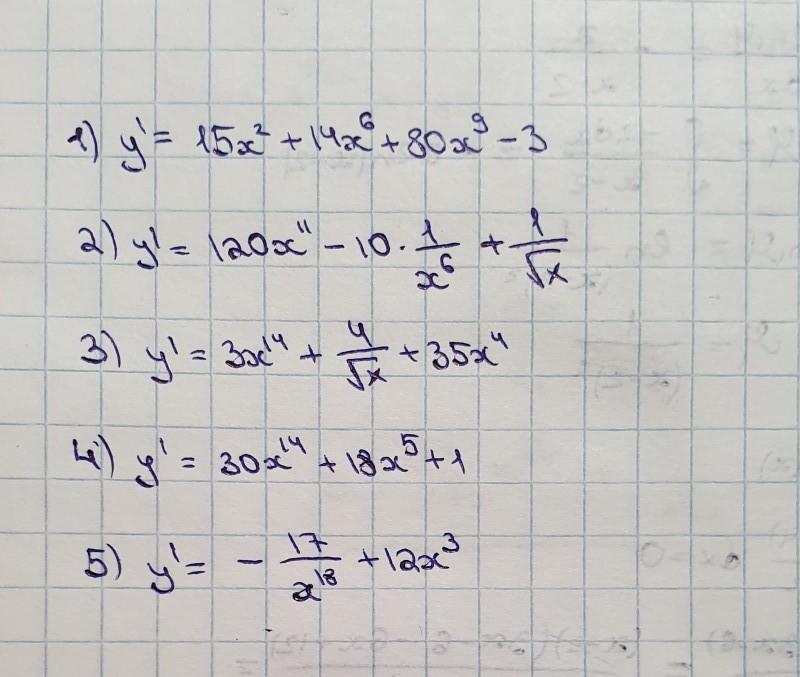 1) y' = 15x² + 14x⁶ + 80x⁹ - 3
2) y' = 120x¹¹ - 10 · 1/x⁶ + 1/√x
3) y' = 3x¹⁴ + 4/√x + 35x⁴
4) y' = 30x¹⁴ + 18x⁵ + 1
5) y' = - 17/x¹⁸ + 12x³